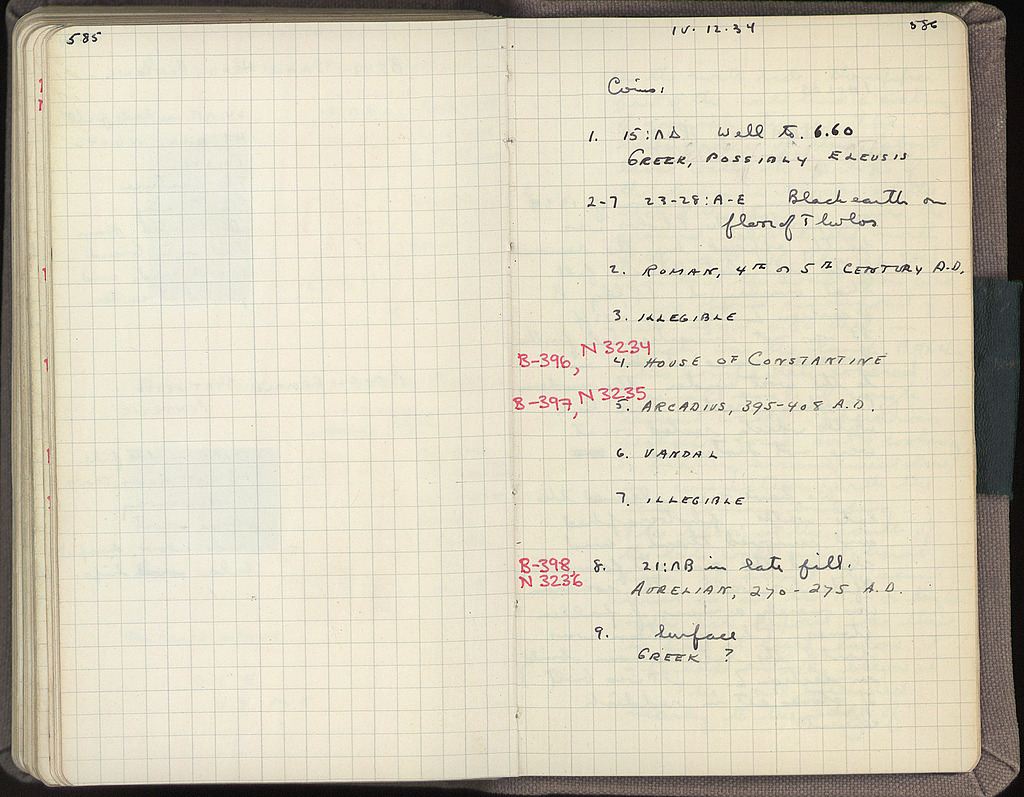 585
IV. 12.34
586
Coins.
1. 15:ΛΔ Well to. 6.60
GREEK, POSSIBLY ELEUSIS
2-7 23-28:A-E Black earth on
floor of Tholos
2. ROMAN, 4TH or 5TH CENTURY A.D.
3. ILLEGIBLE
B-396, N 3234 4. HOUSE OF CONSTANTINE
B-397, N 3235 5. ARCADIUS, 395-408 A.D.
6. VANDAL
7. ILLEGIBLE
B-398, 8. 21:ΛB in late fill.
N 3236 AURELIAN, 270-275 A.D.
9. Surface
GREEK ?